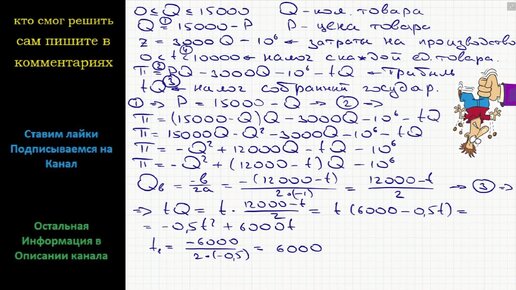 кто смог решить
сам пишите в
комментариях
Ставим лайки
Подписываемся на
Канал
Остальная
Информация в
Описании канала
0 ≤ Q ≤ 15000 Q - кол. товара
Q ① = 15000 - P P - цена товара
z = 3000Q - 10⁶ ← затраты на производство
0 < t ④ < 10000 ← налог с каждой ед. товара.
П ② = PQ - 3000Q - 10⁶ - tQ ← прибыль
tQ ③ ← налог собранний государ.
① ⇒ P = 15000 - Q → ② ⇒
П = (15000 - Q)Q - 3000Q - 10⁶ - tQ
П = 15000Q - Q² - 3000Q - 10⁶ - tQ
П = -Q² + 12000Q - tQ - 10⁶
П = -Q² + (12000 - t)Q - 10⁶
Qв = -в/2a = -(12000 - t)/2·(-1) = 12000 - t/2 → ③ ⇒
⇒ tQ = t · 12000 - t/2 = t(6000 - 0,5t) =
= -0,5t² + 6000t
tв = -6000/2·(-0,5) = 6000